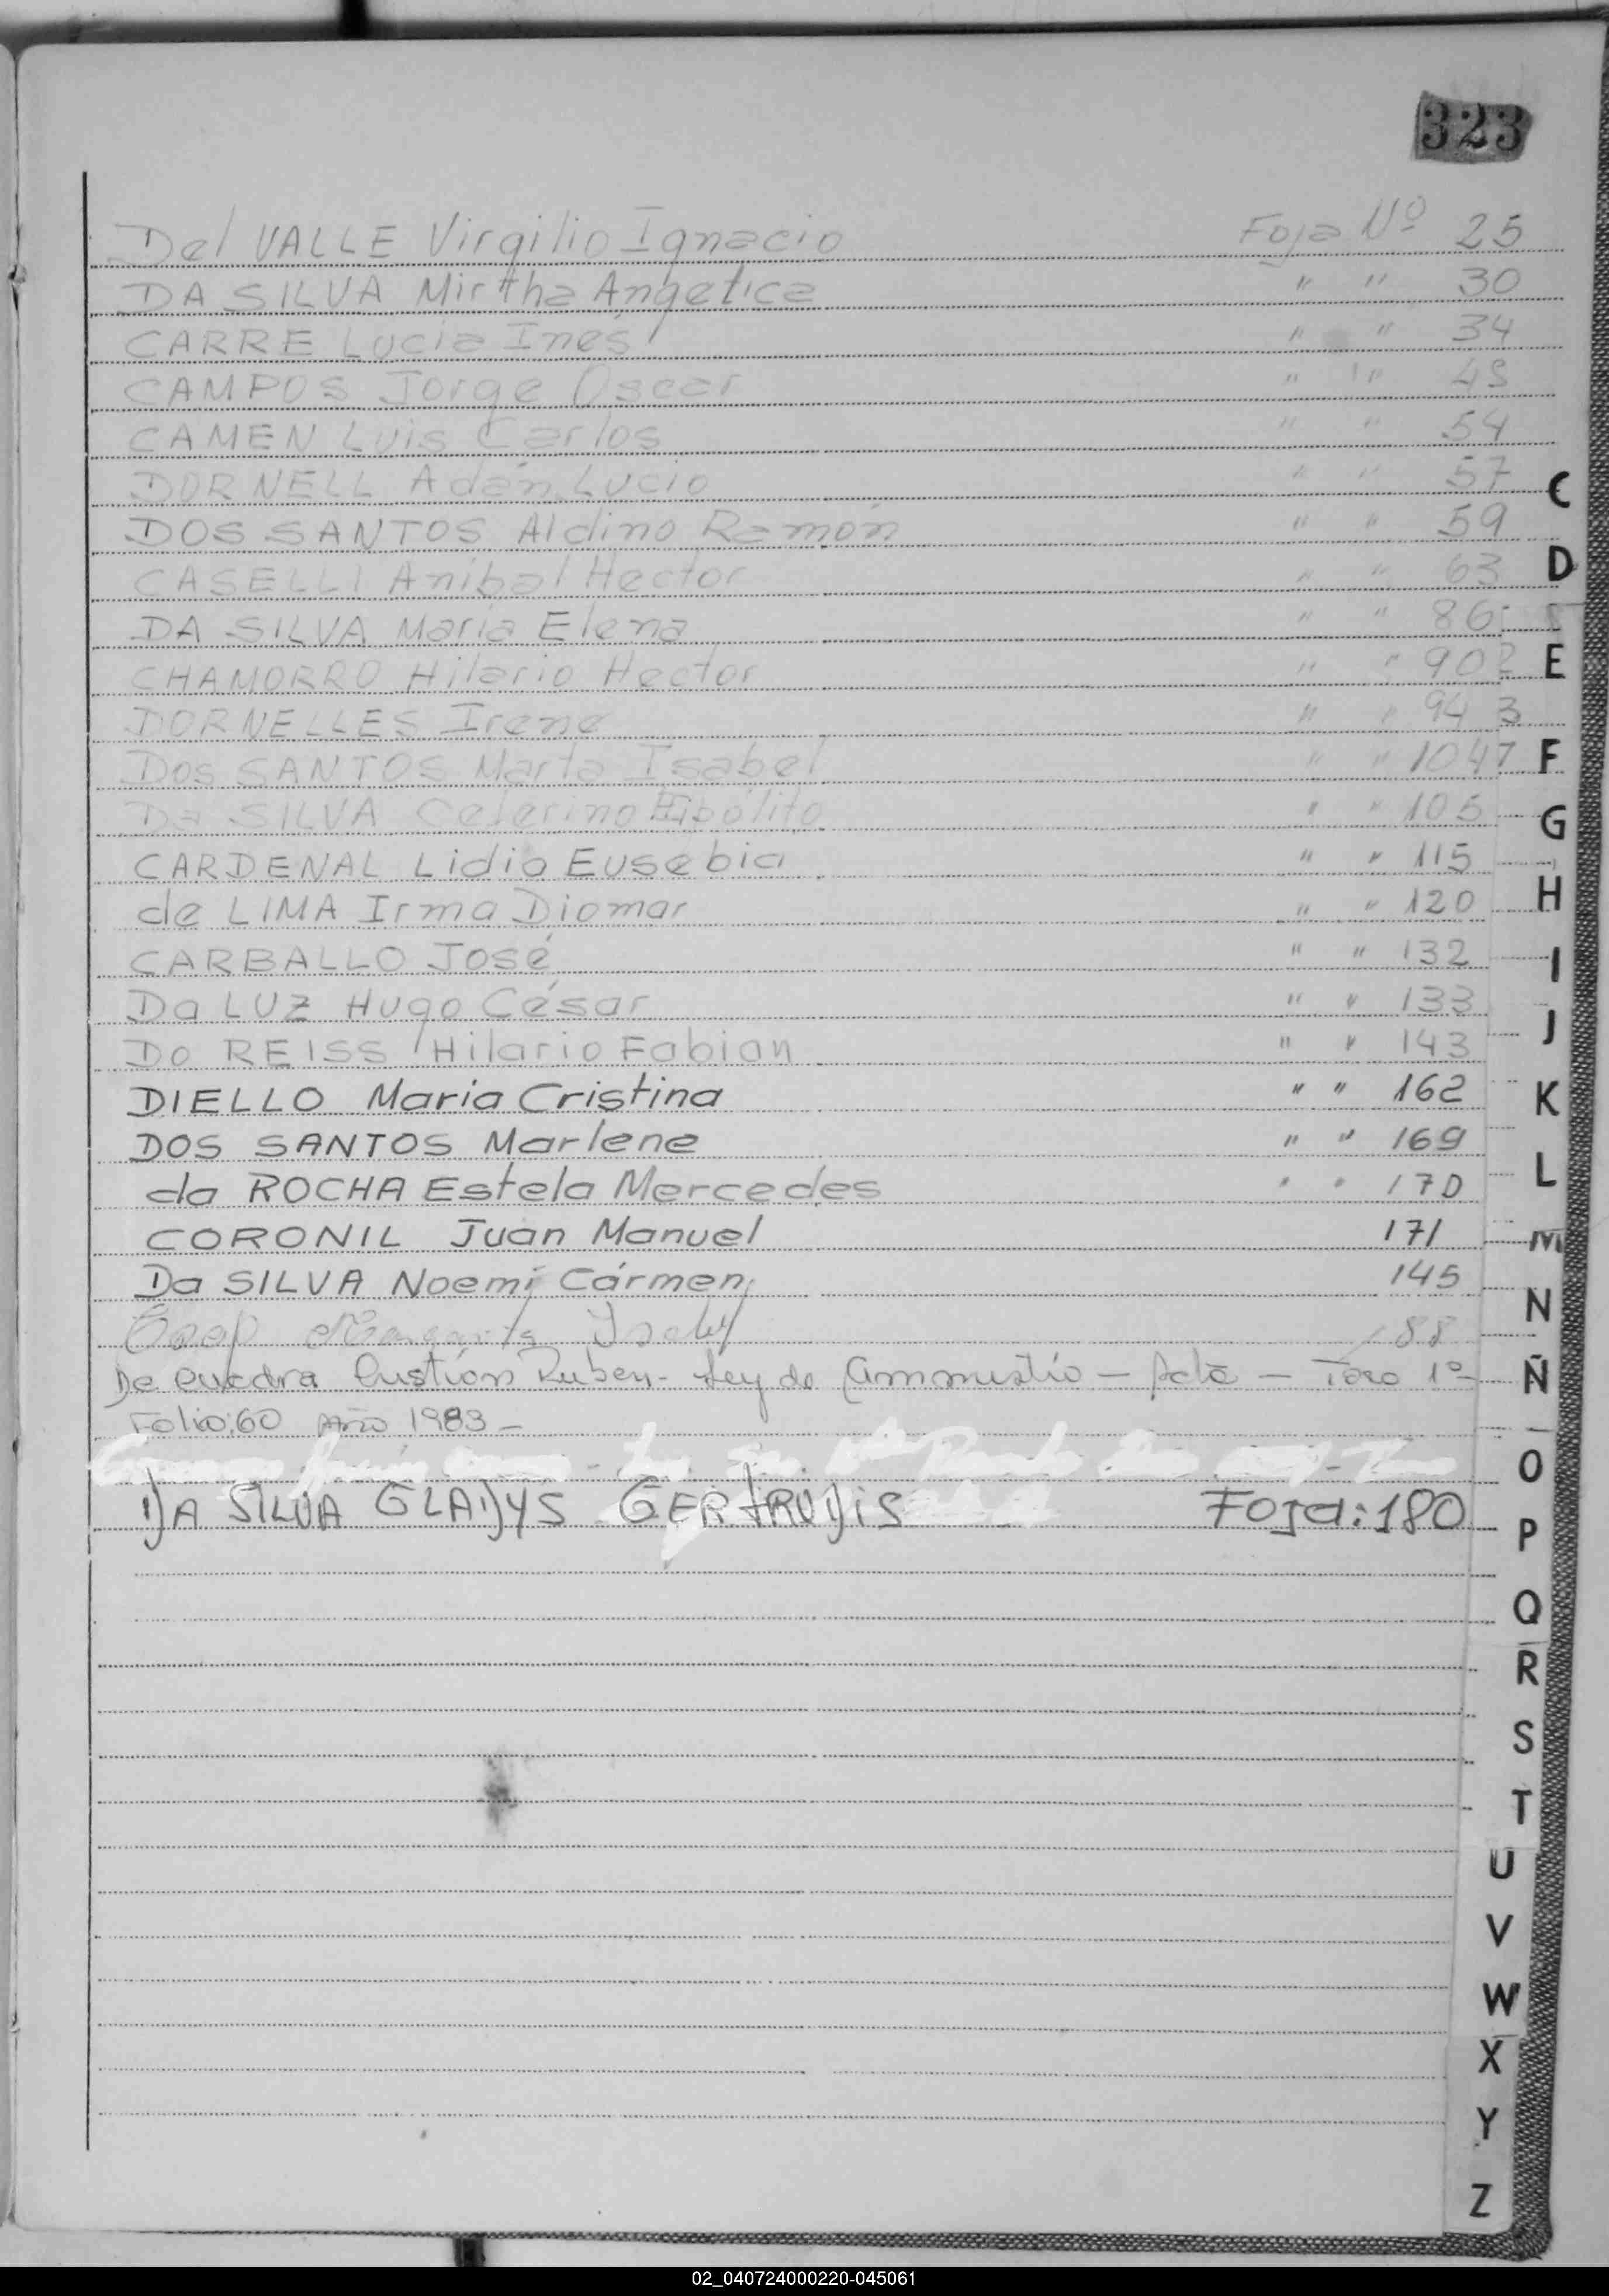 323
Del VALLE Virgilio Ignacio Foja Nº 25
DA SILVA Mirtha Angelica " " 30
CARRE Lucia Inés " " 34
CAMPOS Jorge Oscar " " 43
CAMEN Luis Carlos " " 54
DORNELL Adán Lucio " " 57
DOS SANTOS Aldino Ramón " " 59
CASELLI Anibal Hector " " 63
DA SILVA Maria Elena " " 86
CHAMORRO Hilario Hector " " 90
DORNELLES Irene " " 94
Dos SANTOS Marta Isabel " " 104
Da SILVA Ceferino Hipólito " " 105
CARDENAL Lidia Eusebia " " 115
de LIMA Irma Diomar " " 120
CARBALLO José " " 132
Da LUZ Hugo César " " 133
Do REISS Hilario Fabian " " 143
DIELLO Maria Cristina " " 162
DOS SANTOS Marlene " " 169
da ROCHA Estela Mercedes " " 170
CORONIL Juan Manuel 171
Da SILVA Noemi Cármen 145
88
De Cuadra Ruben - Ley de - Acta - 1º
Folio: 60 Año 1983 -
DA SILVA GLADYS GERTRUDIS Foja: 180
C
D
E
F
G
H
I
J
K
L
M
N
Ñ
O
P
Q
R
S
T
U
V
W
X
Y
Z
02_040724000220-045061